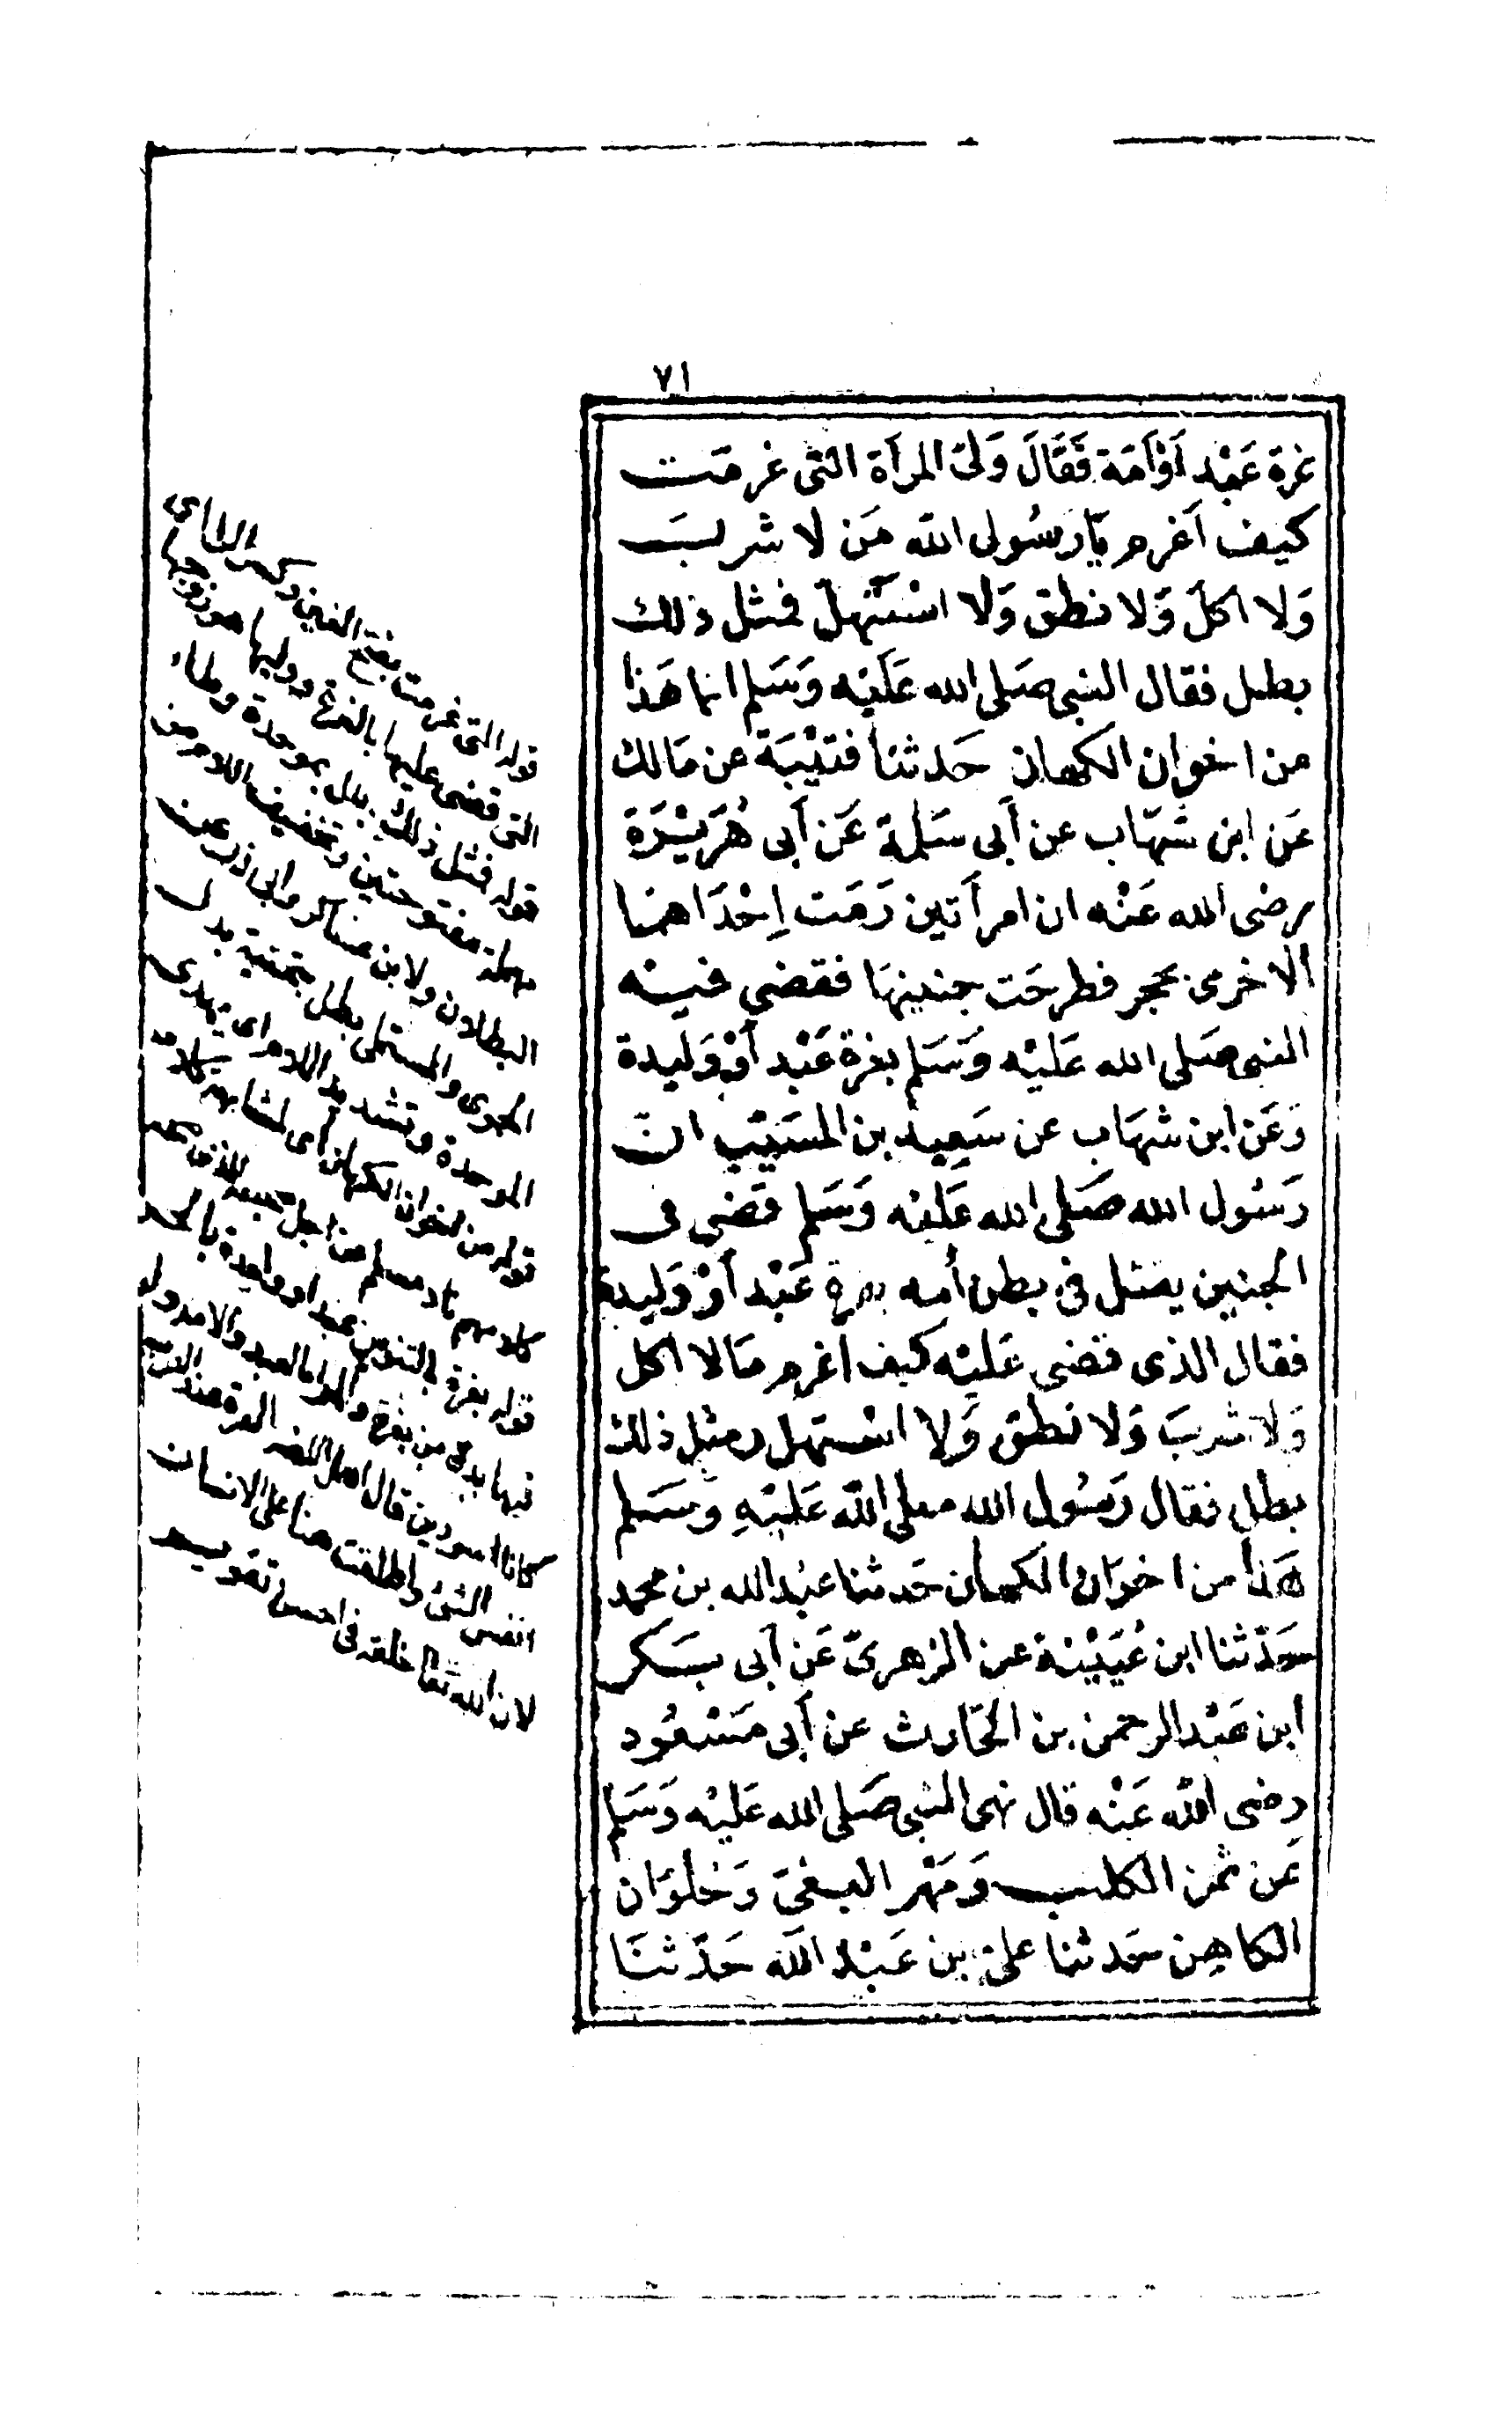 ٧١
غرة عَبْد اَوْاَمَة فَقَالَ وَلىّ المرأة التى غرمَت
كيف اَغرم يَارسُول الله مَن لا شربَ
وَلا اكلَ وَلا نطق وَلا اسْتَهلّ فمثل ذلك
بطل فقال النبى صَلى الله عَليْه وَسَلم انما هَذا
من اخوان الكهان حَدثنا قتيْبَة عن مَالك
عَن ابن شهَاب عن أبى سَلمة عَن أبى هُرَيْرَة
رضى الله عَنْه ان امرأتين رَمَت اِحْدَاهمَا
الاخرى بحَجر فطرحَت جنينهَا فقضى فيْه
النبى صَلى الله عَليْه وَسَلم بغرة عَبْد أوْ وَليدة
وَعَن ابن شهَاب عن سَعِيد بن المسَيّب انّ
رَسُول الله صَلى الله عَليْه وَسَلم قضى فى
الجنين يقتل فى بطن أمه بغرة عَبْد أوْ وَليدة
فقال الذى قضى عَليْه كيف اغرم مَالا اكل
وَلا شربَ وَلا نطق وَلا استهل ومثل ذلك
بطل فقال رَسُول الله صلى الله عَليْهِ وَسَلم
هَذا من اخوَان الكهان حَدثنا عبْد الله بن محمد
حَدّثنا ابن عُيَيْنة عن الزهرىّ عَن أبى بَكر
ابن عَبْد الرحمن بن الحَارث عن أبى مَسْعُود
رضى الله عَنْه قال نهى النبى صَلى الله عَليْه وَسَلم
عَن ثمن الكلب وَمَهْر البغىّ وَحُلوَان
الكاهِن حَدثنا علىّ بن عَبْد الله حَدّثنَا
قوله التى غرمت بفتح الغين وكسر الراء اى
التى قضى عليها بالغرة ووليها هو زوجها
قوله فمثل ذلك بطل بموحدة وطاء
مهملة مفتوحتين وتخفيف اللام من
البطلان ولابن عساكر وابى ذر عن
الحموى والمستملى يطل بتحتية بدل
الموحدة وتشديد اللام اى يهدر
قوله من اخوان الكهان اى لمشابهة كلامه
كلامهم زاد مسلم من اجل سجعه الذى سجع
قوله بغرة بالتنوين عبد او وليدة بالجر
فيهما بدل من بغرة والمراد العبد والامة ولو
كانا اسودين قال اهل اللغة الغرة عند العرب
انفس الشئ واطلقت هنا على الانسان
لان الله تعالى خلقه فى احسن تقويم